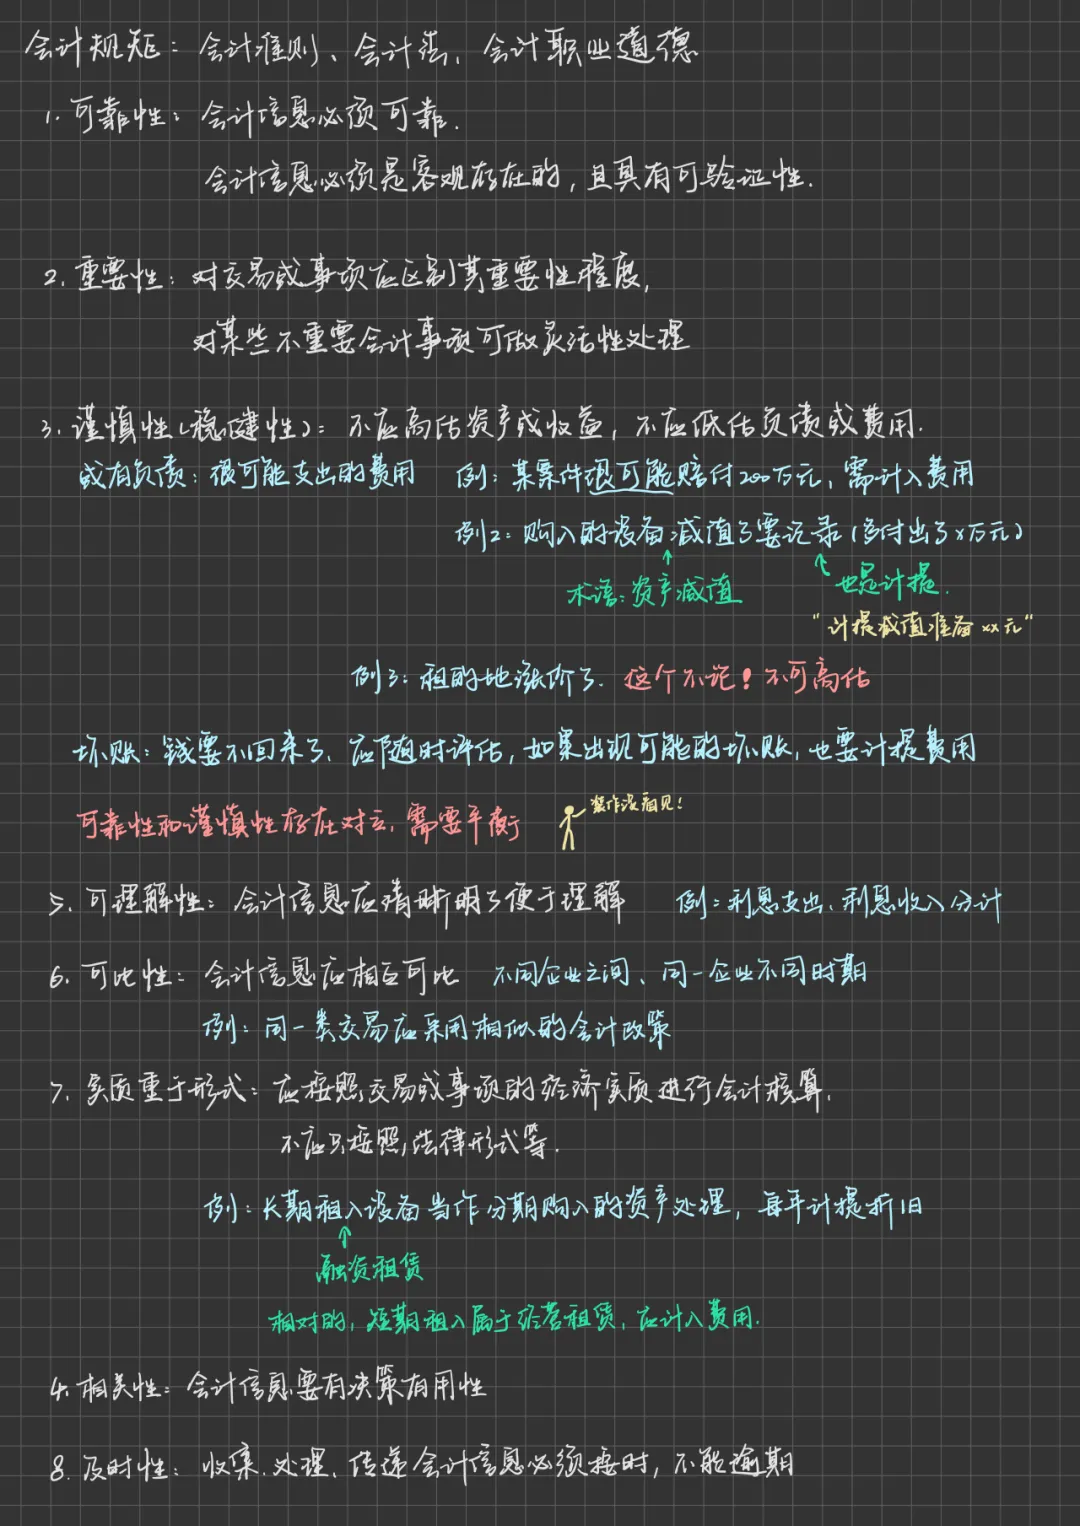 会计规矩：会计准则、会计法、会计职业道德
1. 可靠性：会计信息必须可靠.
会计信息必须是客观存在的，且具有可验证性.
2. 重要性：对交易或事项应区别其重要性程度,
对某些不重要会计事项可做灵活性处理
3. 谨慎性(稳健性)：不应高估资产或收益，不应低估负债或费用.
或有负债：很可能支出的费用 例：某案件很可能赔付200万元，需计入费用
例2：购入的设备减值了要记录(多付出了x万元)
术语：资产减值 也是计提.
"计提减值准备xx元"
例3：租的地涨价了. 这个不记！不可高估
坏账：钱要不回来了、应随时评估，如果出现可能的坏账，也要计提费用
可靠性和谨慎性存在对立，需要平衡 装作没看见！
5. 可理解性：会计信息应清晰明了便于理解 例：利息支出、利息收入分计
6. 可比性：会计信息应相互可比 不同企业之间、同一企业不同时期
例：同一类交易应采用相似的会计政策
7. 实质重于形式：应按照交易或事项的经济实质进行会计核算,
不应只按照法律形式等.
例：长期租入设备当作分期购入的资产处理，每年计提折旧
融资租赁
相对的，短期租入属于经营租赁，应计入费用.
4. 相关性：会计信息要有决策有用性
8. 及时性：收集、处理、传递会计信息必须按时，不能逾期